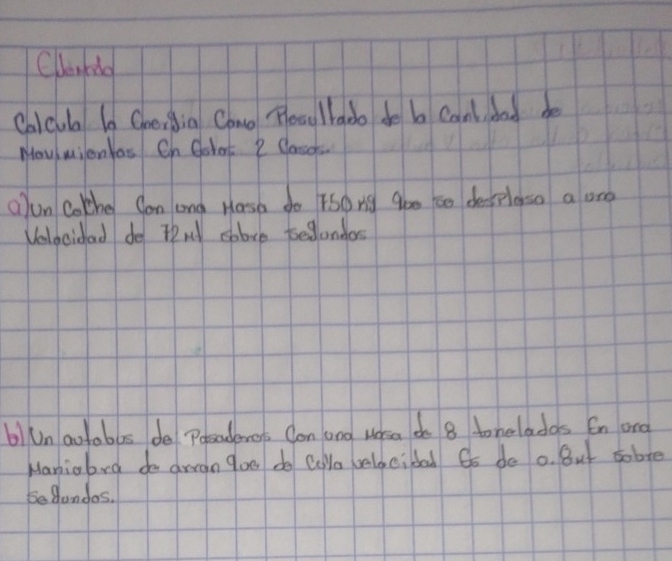 Calcula la Energia Como Resultado de la Cantidad de
Movimientos En Estos 2 Casos.
a) Un Coche Con una Masa de 750 Kg que se desplasa a una
Velocidad de 72 Mt sobre segundos
b) Un autobus de Pasaderos Con una Masa de 8 toneladas En una
Maniobra de arranque de Culla velocidad Es de 0.8 mt sobre
segundos.